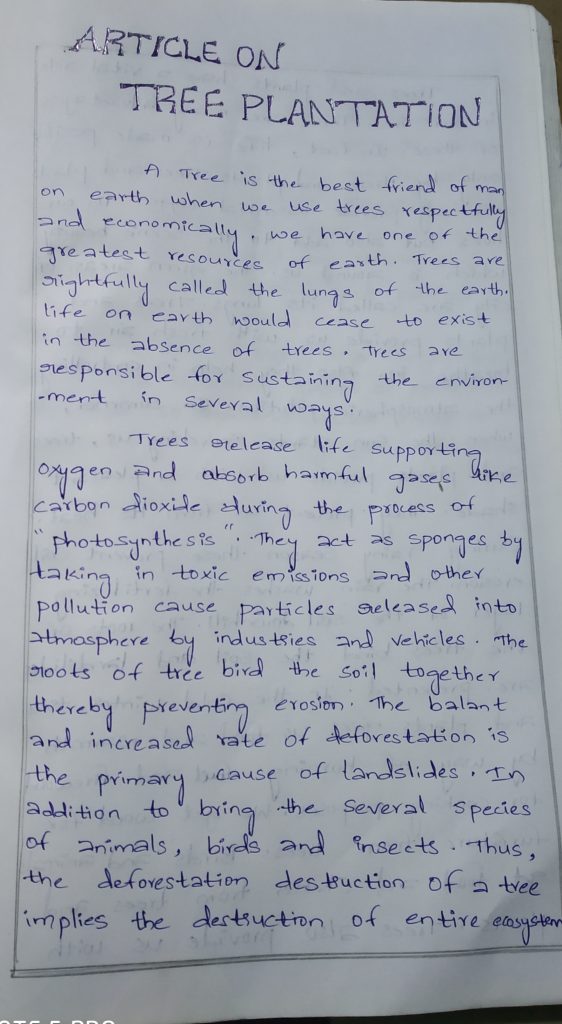 ARTICLE ON
TREE PLANTATION
A Tree is the best friend of man
on earth when we use trees respectfully
and economically, we have one of the
greatest resources of earth. Trees are
rightfully called the lungs of the earth.
life on earth would cease to exist
in the absence of trees. Trees are
responsible for sustaining the environ-
-ment in several ways.
Trees release life supporting
oxygen and absorb harmful gases like
carbon dioxide during the process of
"photosynthesis". They act as sponges by
taking in toxic emissions and other
pollution cause particles released into
atmosphere by industries and vehicles. The
roots of tree bird the soil together
thereby preventing erosion. The balant
and increased rate of deforestation is
the primary cause of landslides. In
addition to bring the several species
of animals, birds and insects. Thus,
the deforestation destruction of a tree
implies the destruction of entire ecosystem